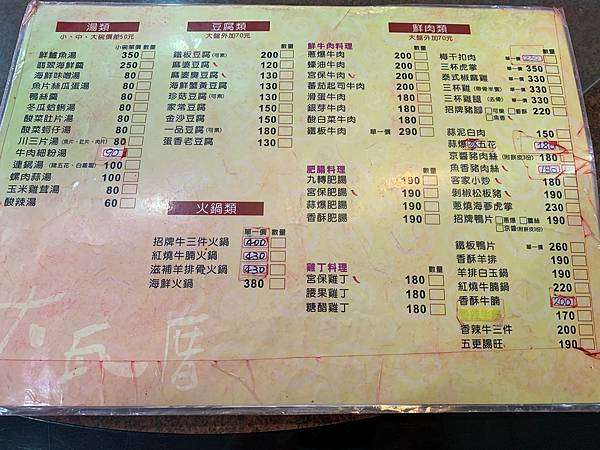 湯類
小、中、大碗價差50元
小碗單價 數量
鮮鱸魚湯 350
翡翠海鮮羹 250
海鮮味噌湯 80
魚片絲瓜蛋湯 80
鴨絲羹 80
冬瓜蛤蜊湯 80
酸菜肚片湯 80
酸菜蚵仔湯 80
川三片湯(魚片、肚片、肉片) 80
牛肉細粉湯 90
連鍋湯 80
螺肉蒜湯 80
玉米雞茸湯 80
酸辣湯 60
豆腐類
大盤外加70元
數量
鐵板豆腐(可素) 200
麻婆豆腐 200
麻婆臭豆腐(可素) 200
海鮮蟹黃豆腐 200
珍菇豆腐(可素) 200
家常豆腐 150
金沙豆腐 150
一品豆腐(可素) 180
蛋香老豆腐 130
火鍋類
單一價 數量
招牌牛三件火鍋 400
紅燒牛腩火鍋 430
滋補羊排骨火鍋 430
海鮮火鍋 380
鮮肉類
大盤外加70元
鮮牛肉料理 數量
蔥爆牛肉 200
蠔油牛肉 200
宮保牛肉 200
蕃茄起司牛肉 200
滑蛋牛肉 200
銀芽牛肉 200
酸白菜牛肉 200
鐵板牛肉 單一價 290
肥腸料理 數量
九轉肥腸 190
宮保肥腸 190
蒜爆肥腸 190
香酥肥腸 190
雞丁料理 數量
宮保雞丁 180
腰果雞丁 180
糖醋雞丁 180
數量
梅干扣肉 單一價
三杯虎掌 單一價 350
泰式椒麻雞 330
三杯雞(帶骨半雞) 單一價 330
三杯雞腿(去骨) 單一價 330
招牌豬腳
蒜泥白肉 150
蒜爆 五花
京醬豬肉絲(附餅皮3份) 180
魚香豬肉絲
客家小炒 180
剝椒松板豬 190
蔥燒海參虎掌 230
招牌鴨片 蔥爆 薑絲 京醬(附餅皮3份) 190
鐵板鴨片 單一價 260
香酥羊排 190
羊排白玉鍋 190
紅燒牛腩鍋 220
香酥牛腩 200
170
香辣牛三件 200
五更腸旺 190